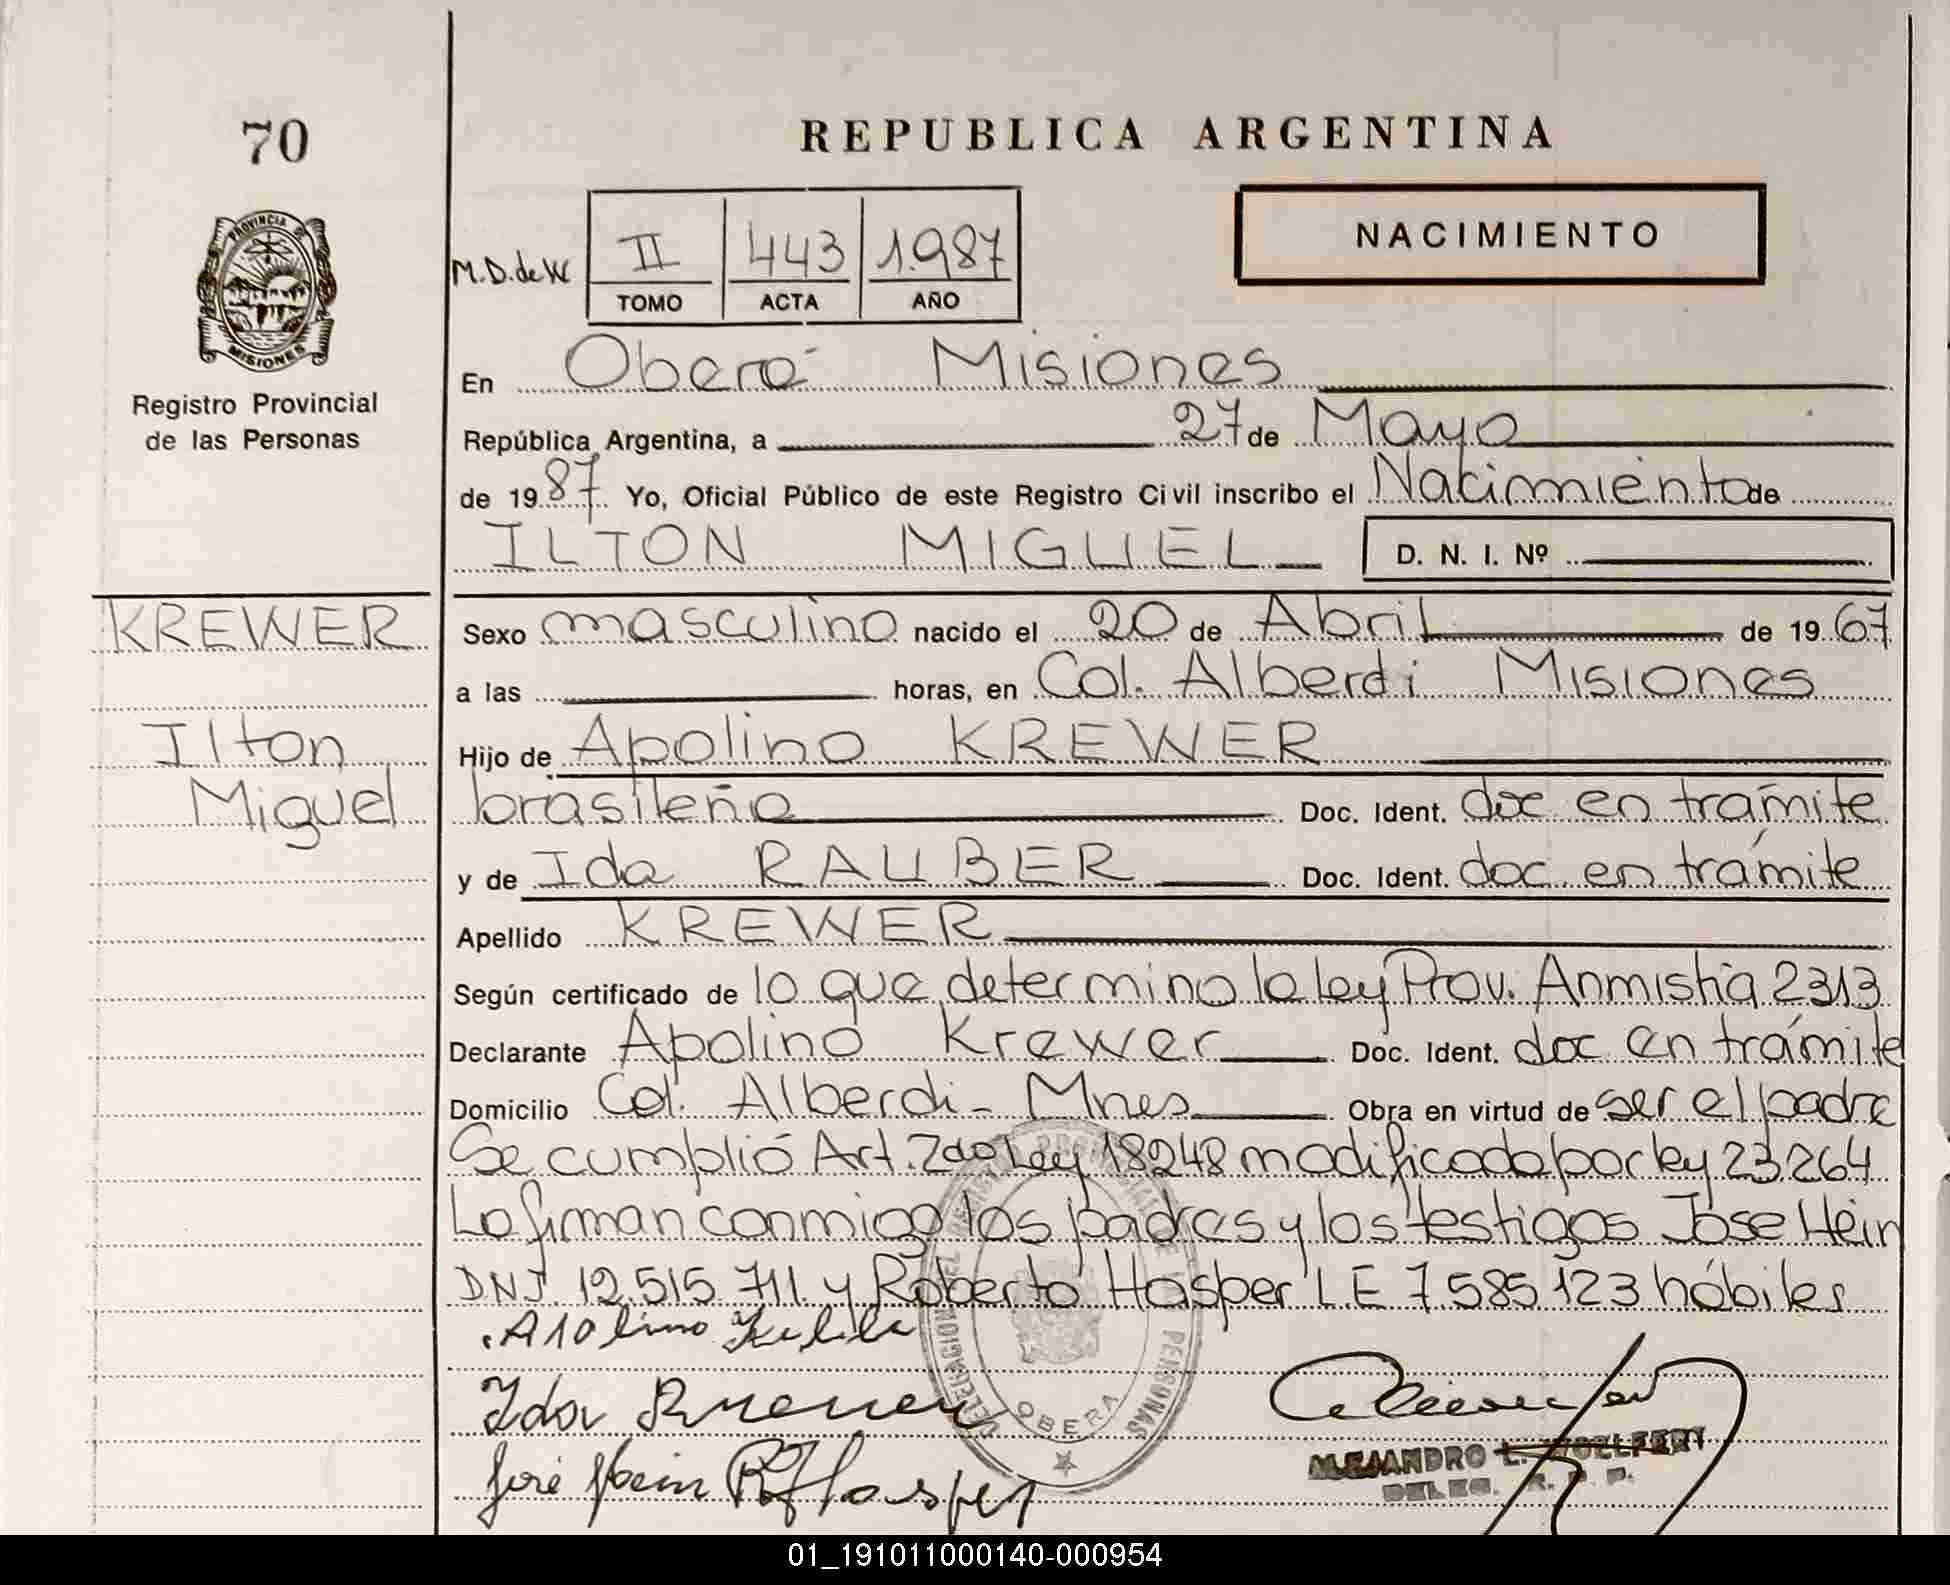 70
REPUBLICA ARGENTINA
PROVINCIA DE
MISIONES
Registro Provincial
de las Personas
M.D. de W
II 443 1.987
TOMO ACTA AÑO
NACIMIENTO
En Oberá Misiones
República Argentina, a 27 de Mayo
de 1987. Yo, Oficial Público de este Registro Civil inscribo el Nacimiento de
ILTON MIGUEL D. N. I. Nº
KREWER
Ilton
Miguel
Sexo masculino nacido el 20 de Abril de 1967
a las horas, en Col. Alberdi Misiones
Hijo de Apolino KREWER
brasileña Doc. Ident. doc en trámite
y de Ida RAUBER Doc. Ident. doc en trámite
Apellido KREWER
Según certificado de lo que determina la ley Prov. Anmistia 2313
Declarante Apolino Krewer Doc. Ident. doc en trámite
Domicilio Col. Alberdi - Mnes Obra en virtud de ser el padre
Se cumplió Art. 2do Ley 18248 modificada por ley 23.264
La firman conmigo los padres y los testigos José Hein
DNI 12.515.711 y Roberto Hasper LE 7.585.123 hábiles
Ida
José Hein R Hasper
DELEGACION DEL REGISTRO PROVINCIAL DE LAS PERSONAS
OBERA
ALEJANDRO L. WOELFERT
DELEG. R. P. P.
01_191011000140-000954